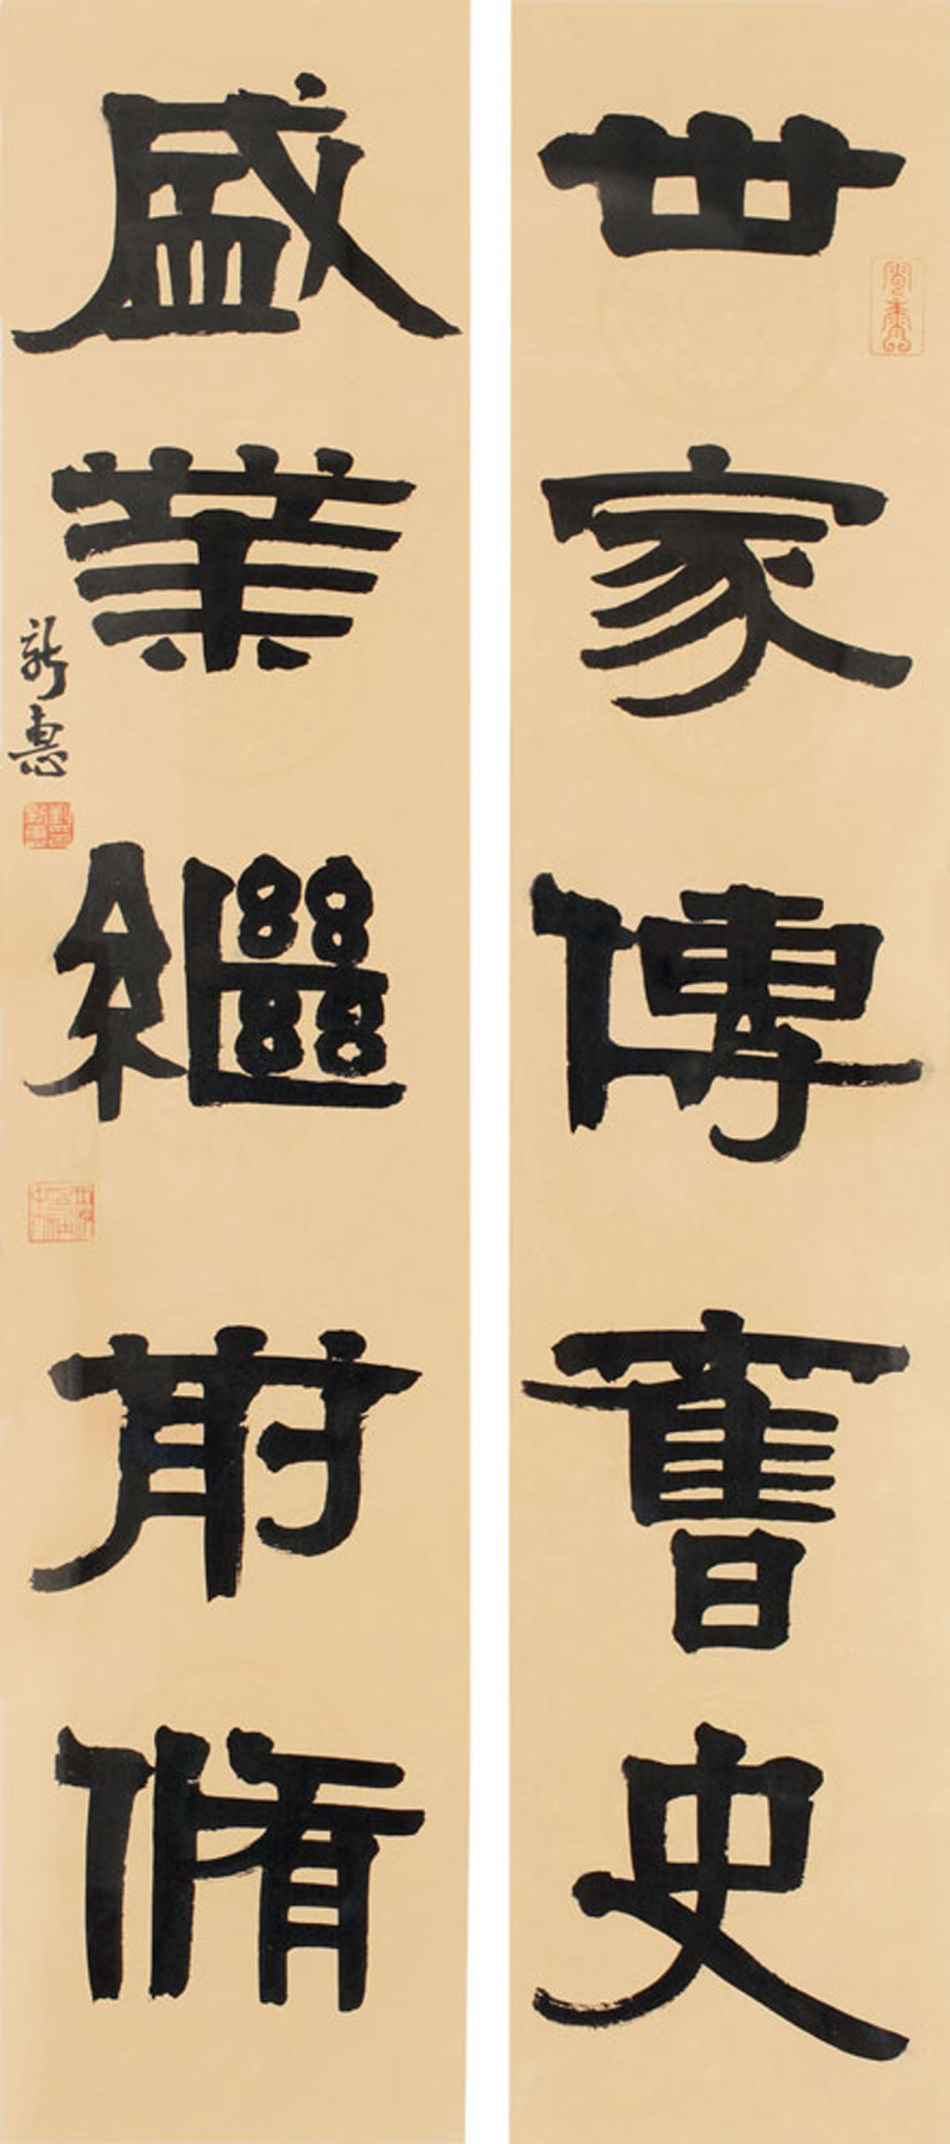 世家傳舊史
盛業繼前脩
新惠